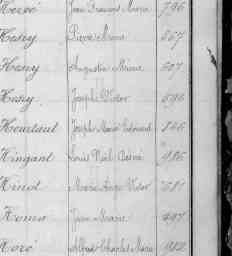 Hervé Jean François Marie 796
Hesry Pierre Marie 667
Hesry Augustin Marie 607
Hesry Joseph Victor
Heurtaut Joseph Marie Edouard
Hingant Louis Noël Désiré 986
Hinot Marie Ange Victor 381
Homo Jean Marie 497
Horé Albert Charles Marie 982